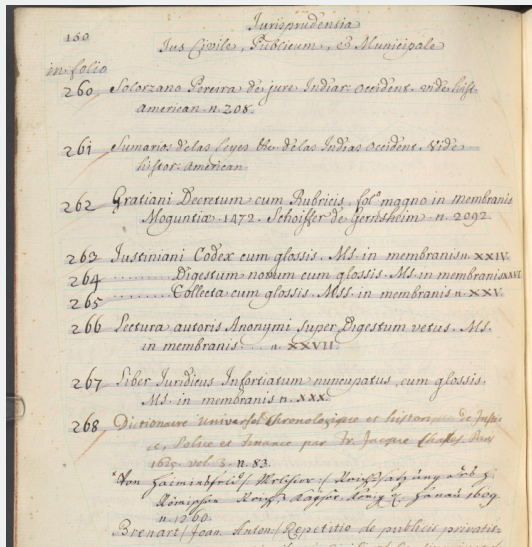 150
Jurisprudentia
Jus Civile, Publicum, & Municipale
in folio
260 Solorzano Pereira de jure Indiar. occident. vide hist.
american. n. 208.
261 Sumarios delas Leyes delas Indias occident. vide
histor. american
262 Gratiani Decretum cum Rubricis, fol. magno in membranis
Moguntiæ. 1472. Schoiffer de Gernsheim. n. 2092
263 Justiniani Codex cum glossis. Ms. in membranis n. XXIV.
264 ......... Digestum novum cum glossis. Ms. in membranis
265 ......... Collecta cum glossis. Mss. in membranis n. XXV
266 Lectura autoris Anonymi super Digestum vetus. Ms.
in membranis ... n. XXVII.
267 Liber Juridicus Infortiatum nuncupatus, cum glossis.
Ms. in membranis n. XXX.
268 Dictionaire universel Chronologique et historique de Justi-
ce, Police et Finance par Fr. Jacque
vol. 3. n. 83.
Von
Hanau 1609
n. 1260
Brenart / Joan. Anton. / Repetitio de publicis privatis-